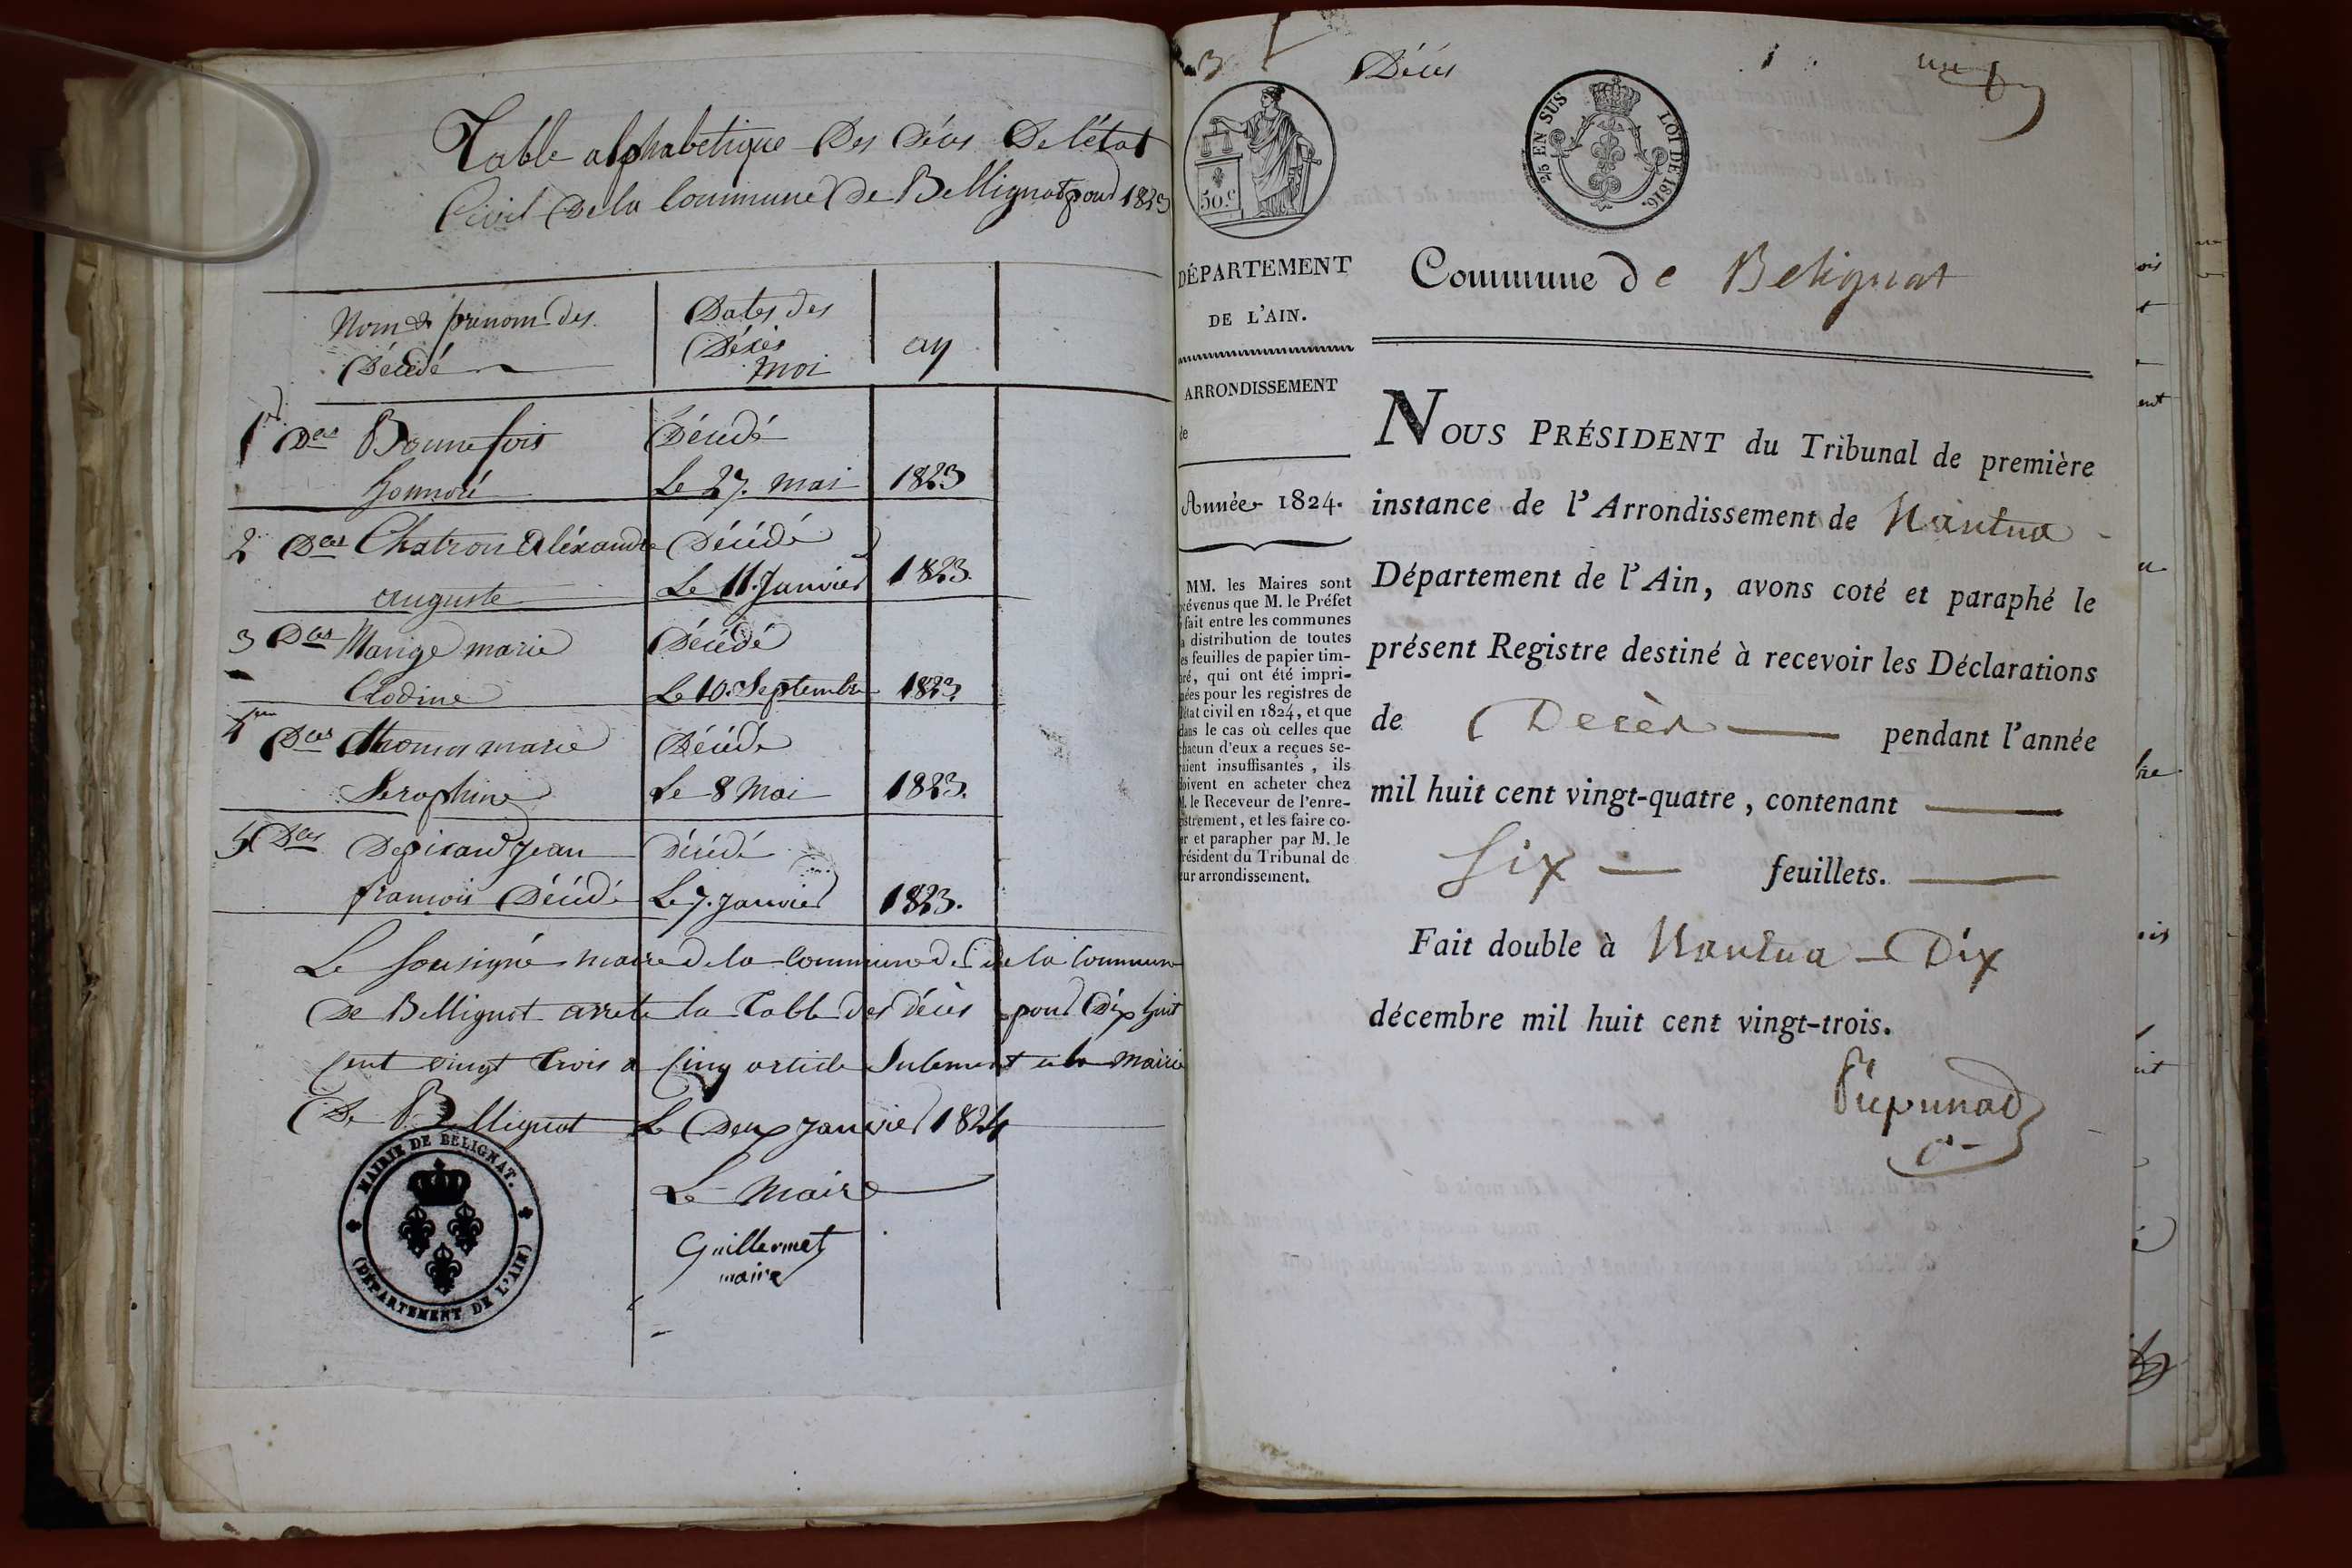 Table alphabetique Des Décès De l'état
Civil De la Commune De Bellignat pour 1823
Nom & prénom des
Décédé
Dates des
Décès
moi
an
1er Des Bonnefois
honnoré
Décédé
Le 27. mai
1823
2 Des Chatron Aléxandre
auguste
Décédé
Le 11. Janvier
1823.
3 Des Marige marie
Clodine
Décédé
Le 10. Septembre
1823.
4 Des thomas marie
Seraphine
Décédé
Le 8 Mai
1823.
5 Des Depicard Jean
francois Décédé
Décédé
Le 7. Janvier
1823.
Le sousigné maire de la Commune de de la Commune
De Bellignat arrete la Table des Décès pour Dix huit
Cent vingt trois a Cinq article Sulement a la Mairie
De Bellignat Le Deux Janvier 1824
Le Maire
Guillermet
maire
MAIRIE DE BÉLIGNAT.
(DÉPARTEMENT DE L'AIN)
3
Décès
1
un
50.c
2/5 EN SUS
LOI DE 1816.
DÉPARTEMENT
DE L'AIN.
ARRONDISSEMENT
de
Année 1824.
MM. les Maires sont
prévenus que M. le Préfet
fait entre les communes
la distribution de toutes
les feuilles de papier tim-
bré, qui ont été impri-
mées pour les registres de
l'état civil en 1824, et que
dans le cas où celles que
chacun d'eux a reçues se-
raient insuffisantes, ils
doivent en acheter chez
M. le Receveur de l'enre-
gistrement, et les faire co-
ter et parapher par M. le
Président du Tribunal de
leur arrondissement.
Commune de Belignat
NOUS PRÉSIDENT du Tribunal de première
instance de l'Arrondissement de Nantua
Département de l'Ain, avons coté et paraphé le
présent Registre destiné à recevoir les Déclarations
de Decès pendant l'année
mil huit cent vingt-quatre, contenant
Six feuillets.
Fait double à Nantua Dix
décembre mil huit cent vingt-trois.